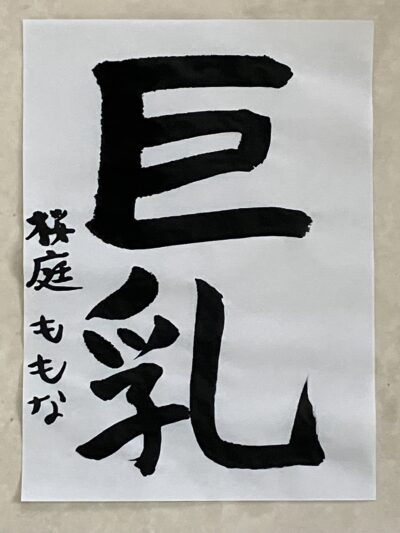 巨乳
桜庭 ももな